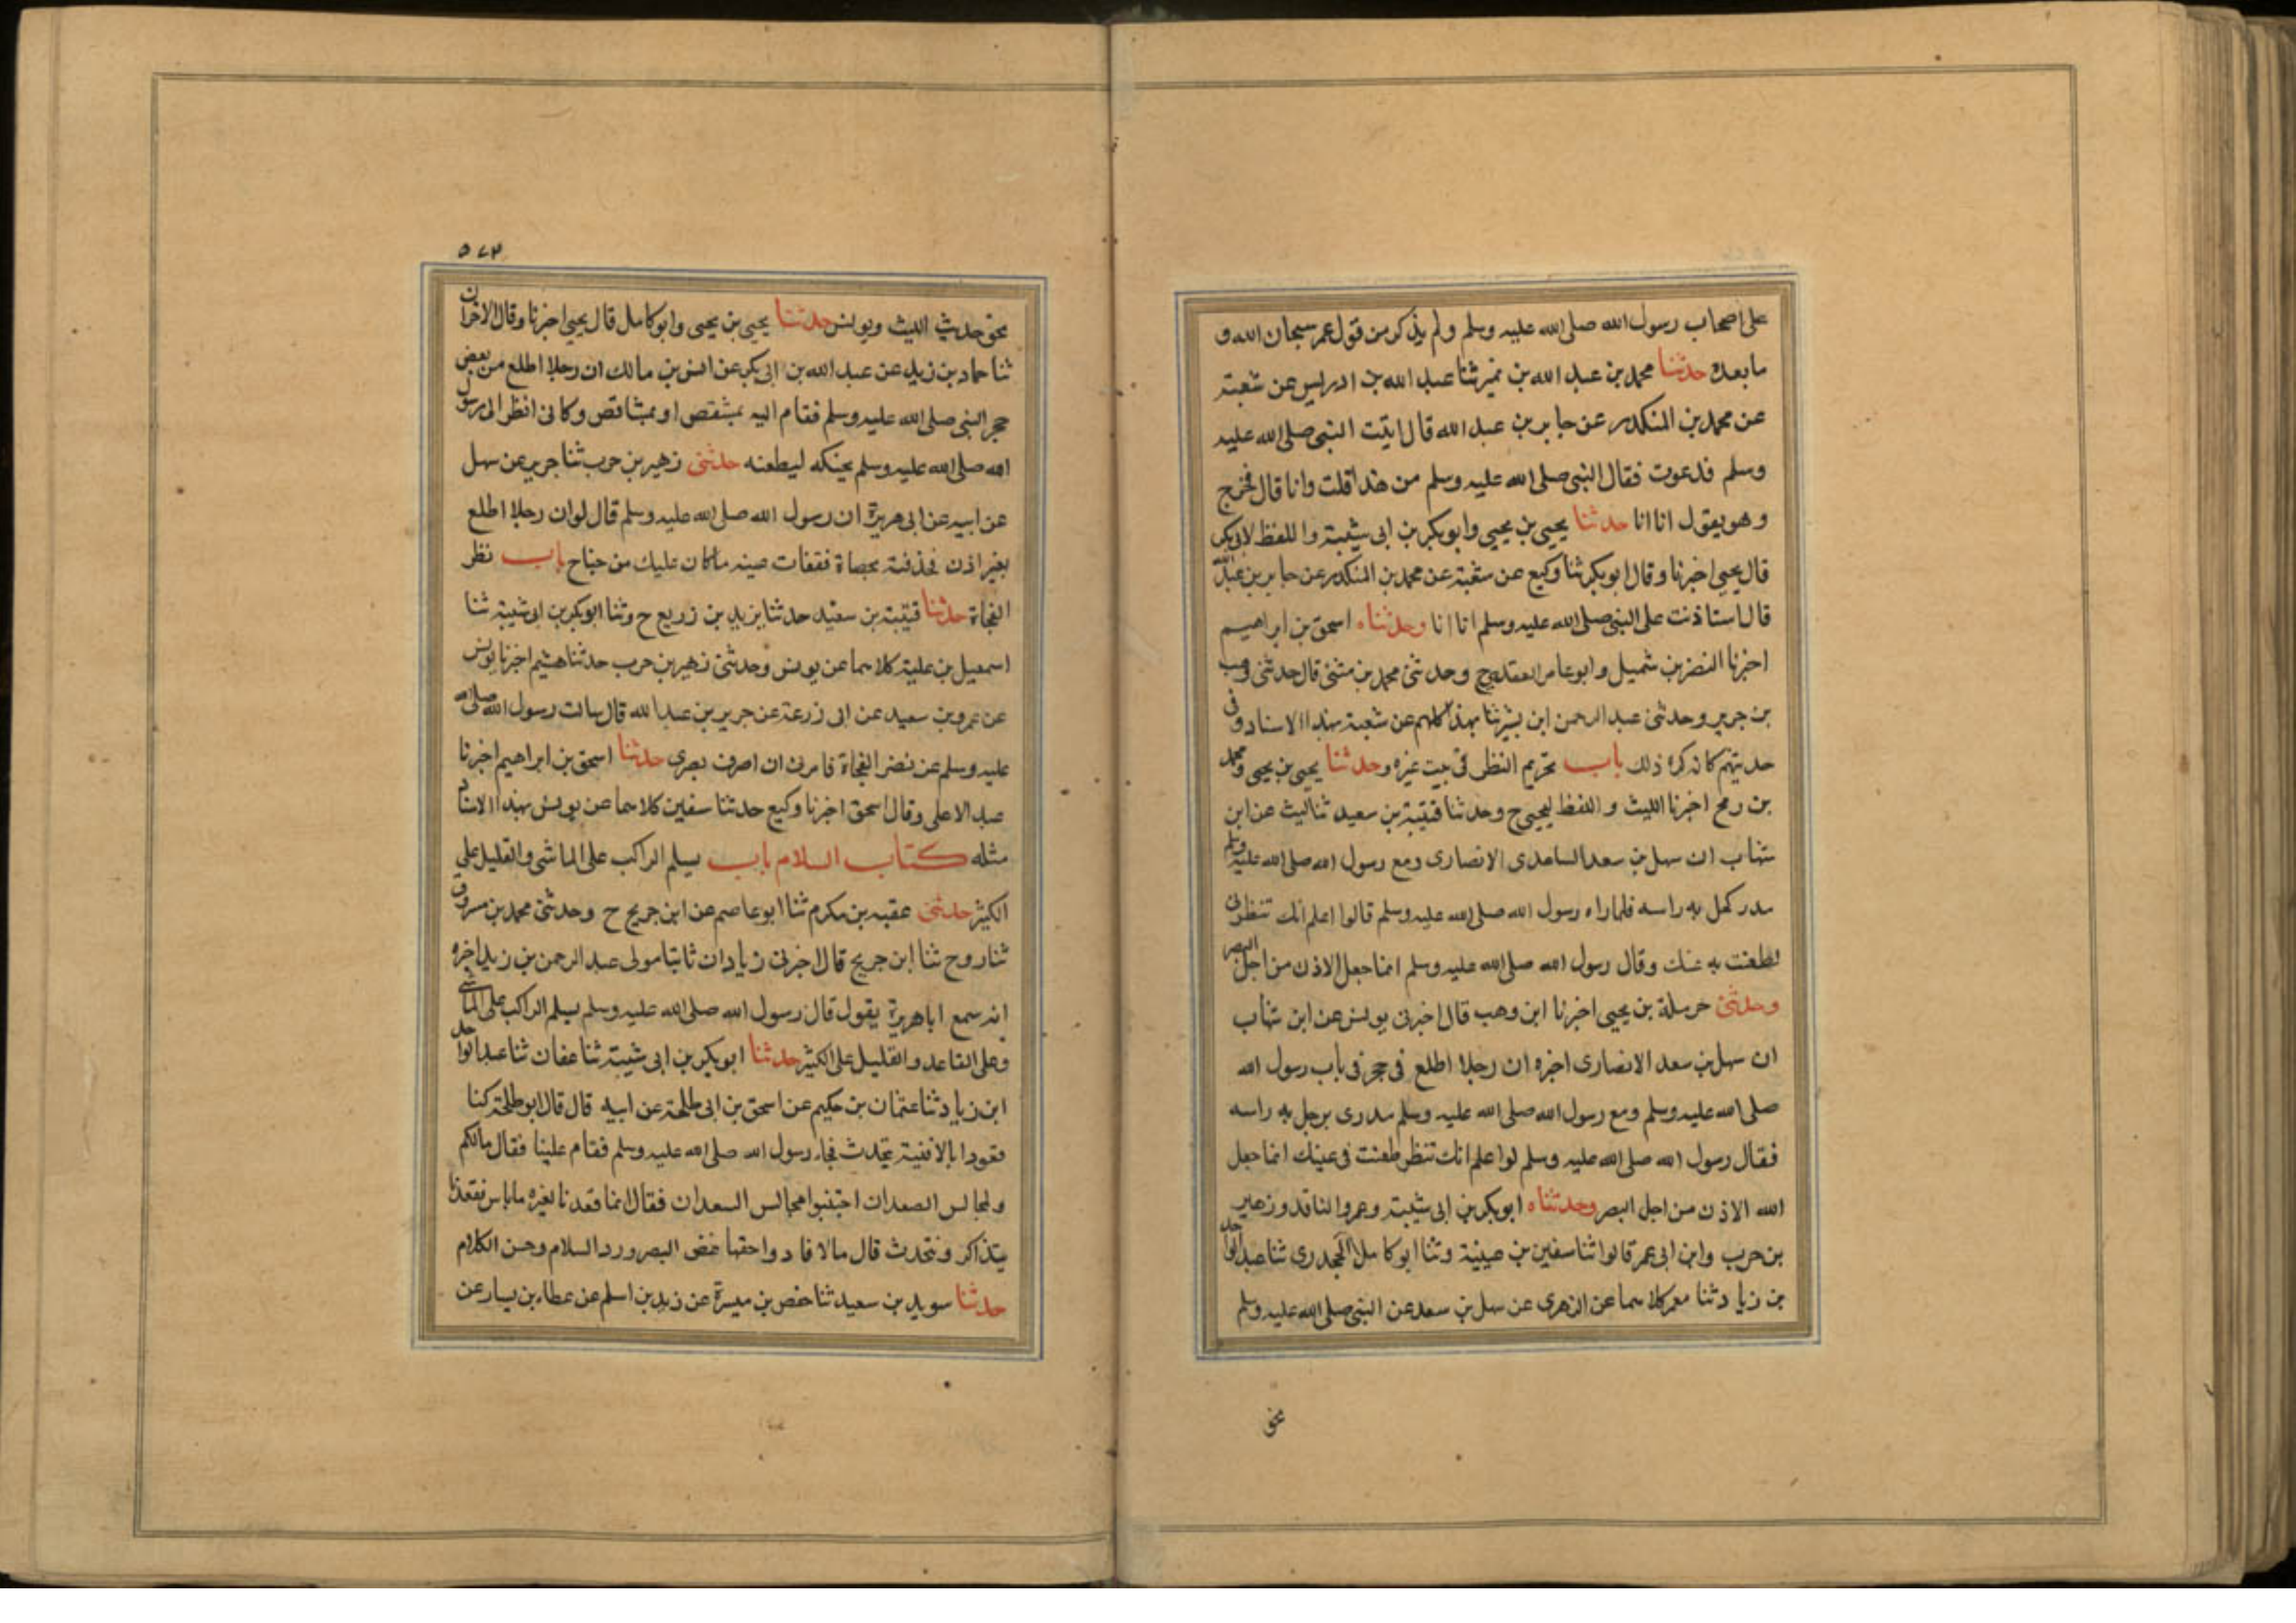 على اصحاب رسول الله صلى الله عليه وسلم ولم يذكر من قول عمر سبحان الله و
ما بعده حدثنا محمد بن عبد الله بن نمير ثنا عبد الله بن ادريس عن شعبة
عن محمد بن المنكدر عن جابر بن عبد الله قال اتيت النبي صلى الله عليه
وسلم فدعوت فقال النبي صلى الله عليه وسلم من هذا قلت وانا قال فخرج
وهو يقول انا انا حدثنا يحيى بن يحيى وابو بكر بن ابى شيبة واللفظ لابى بكر
قال يحيى اخبرنا وقال ابو بكر ثنا وكيع عن شعبة عن محمد بن المنكدر عن جابر بن عبد الله
قال استاذنت على النبي صلى الله عليه وسلم انا انا وحدثناه اسحق بن ابراهيم
اخبرنا النضر بن شميل وابو عامر العقدى ح وحدثنى محمد بن مثنى قال حدثنى وهب
بن جرير وحدثنى عبد الرحمن ابن بشر ثنا بهذا كلهم عن شعبة بهذا الاسناد وفى
حديثهم كانه كره ذلك باب تحريم النظر فى بيت غيره وحدثنا يحيى بن يحيى ومحمد
بن رمح اخبرنا الليث واللفظ ليحيى ح وحدثنا قتيبة بن سعيد ثنا ليث عن ابن
شهاب ان سهل بن سعد الساعدى الانصارى ومع رسول الله صلى الله عليه وسلم
مدر كحل به راسه فلما راه رسول الله صلى الله عليه وسلم قالوا اعلم انك تنظرنى
لطعنت به عينك وقال رسول الله صلى الله عليه وسلم انما جعل الاذن من اجل البصر
وحدثنى حرملة بن يحيى اخبرنا ابن وهب قال اخبرنى يونس عن ابن شهاب
ان سهل بن سعد الانصارى اخبره ان رجلا اطلع فى حجر فى باب رسول الله
صلى الله عليه وسلم ومع رسول الله صلى الله عليه وسلم مدرى يرجل به راسه
فقال رسول الله صلى الله عليه وسلم لو اعلم انك تنظر طعنت فى عينك انما جعل
الله الاذن من اجل البصر وحدثناه ابو بكر بن ابى شيبة وعمرو الناقد وزهير
بن حرب وابن ابى عمر قالوا ثنا سفين بن عيينة وثنا ابو كامل الجحدرى ثنا عبد الواحد
بن زياد ثنا معمر كلاهما عن الزهرى عن سهل بن سعد عن النبي صلى الله عليه وسلم
نحو
٥٧٣
نحو حديث الليث ويونس حدثنا يحيى بن يحيى وابو كامل قال يحيى اخبرنا وقال الاخران
ثنا حماد بن زيد عن عبد الله بن ابى بكر عن انس بن مالك ان رجلا اطلع من بعض
حجر النبي صلى الله عليه وسلم فقام اليه بمشقص او بمشاقص وكانى انظر الى رسول
الله صلى الله عليه وسلم يحتكه ليطعنه حدثنى زهير بن حرب ثنا جرير عن سهل
عن ابيه عن ابى هريرة ان رسول الله صلى الله عليه وسلم قال لو ان رجلا اطلع
بغير اذن فخذفته بحصاة ففقات عينه ما كان عليك من جناح باب نظر
الفجاة حدثنا قتيبة بن سعيد حدثنا يزيد بن زريع ح وثنا ابو بكر بن ابى شيبة ثنا
اسمعيل بن علية كلاهما عن يونس وحدثنى زهير بن حرب حدثنا هشيم اخبرنا يونس
عن عمرو بن سعيد عن ابى زرعة عن جرير بن عبد الله قال سالت رسول الله صلى الله
عليه وسلم عن نضر الفجاة فامرنى ان اصرف بصرى حدثنا اسحق بن ابراهيم اخبرنا
عبد الاعلى وقال اسحق اخبرنا وكيع حدثنا سفين كلاهما عن يونس بهذا الاسناد
مثله كتاب السلام باب يسلم الراكب على الماشى والقليل على
الكثير حدثنى عقبه بن مكرم ثنا ابو عاصم عن ابن جريج ح وحدثنى محمد بن مسروق
ثنا روح ثنا ابن جريج قال اخبرنى زياد ان ثابتا مولى عبد الرحمن بن زيد اخبره
انه سمع ابا هريرة يقول قال رسول الله صلى الله عليه وسلم يسلم الراكب على الماشى
وعلى القاعد والقليل على الكثير حدثنا ابو بكر بن ابى شيبة ثنا عفان ثنا عبد الواحد
ابن زياد ثنا عثمان بن حكيم عن اسحق بن ابى طلحة عن ابيه قال قال ابو طلحة كنا
قعودا بالافنية نتحدث فجاء رسول الله صلى الله عليه وسلم فقام علينا فقال مالكم
ولمجالس الصعدات اجتنبوا مجالس السعدات فقال انما قعدنا لغيره ماباس نقعدنا
يتذاكر ونتحدث قال مالا فادوا حقها غض البصر ورد السلام وحسن الكلام
حدثنا سويد بن سعيد ثنا حفص بن ميسرة عن زيد بن اسلم عن عطاء بن يسار عن